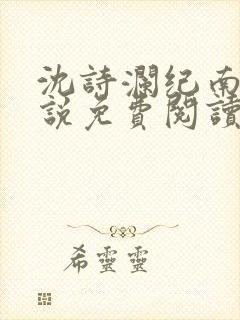 沈詩瀾紀南
說免費閱讀
希靈靈